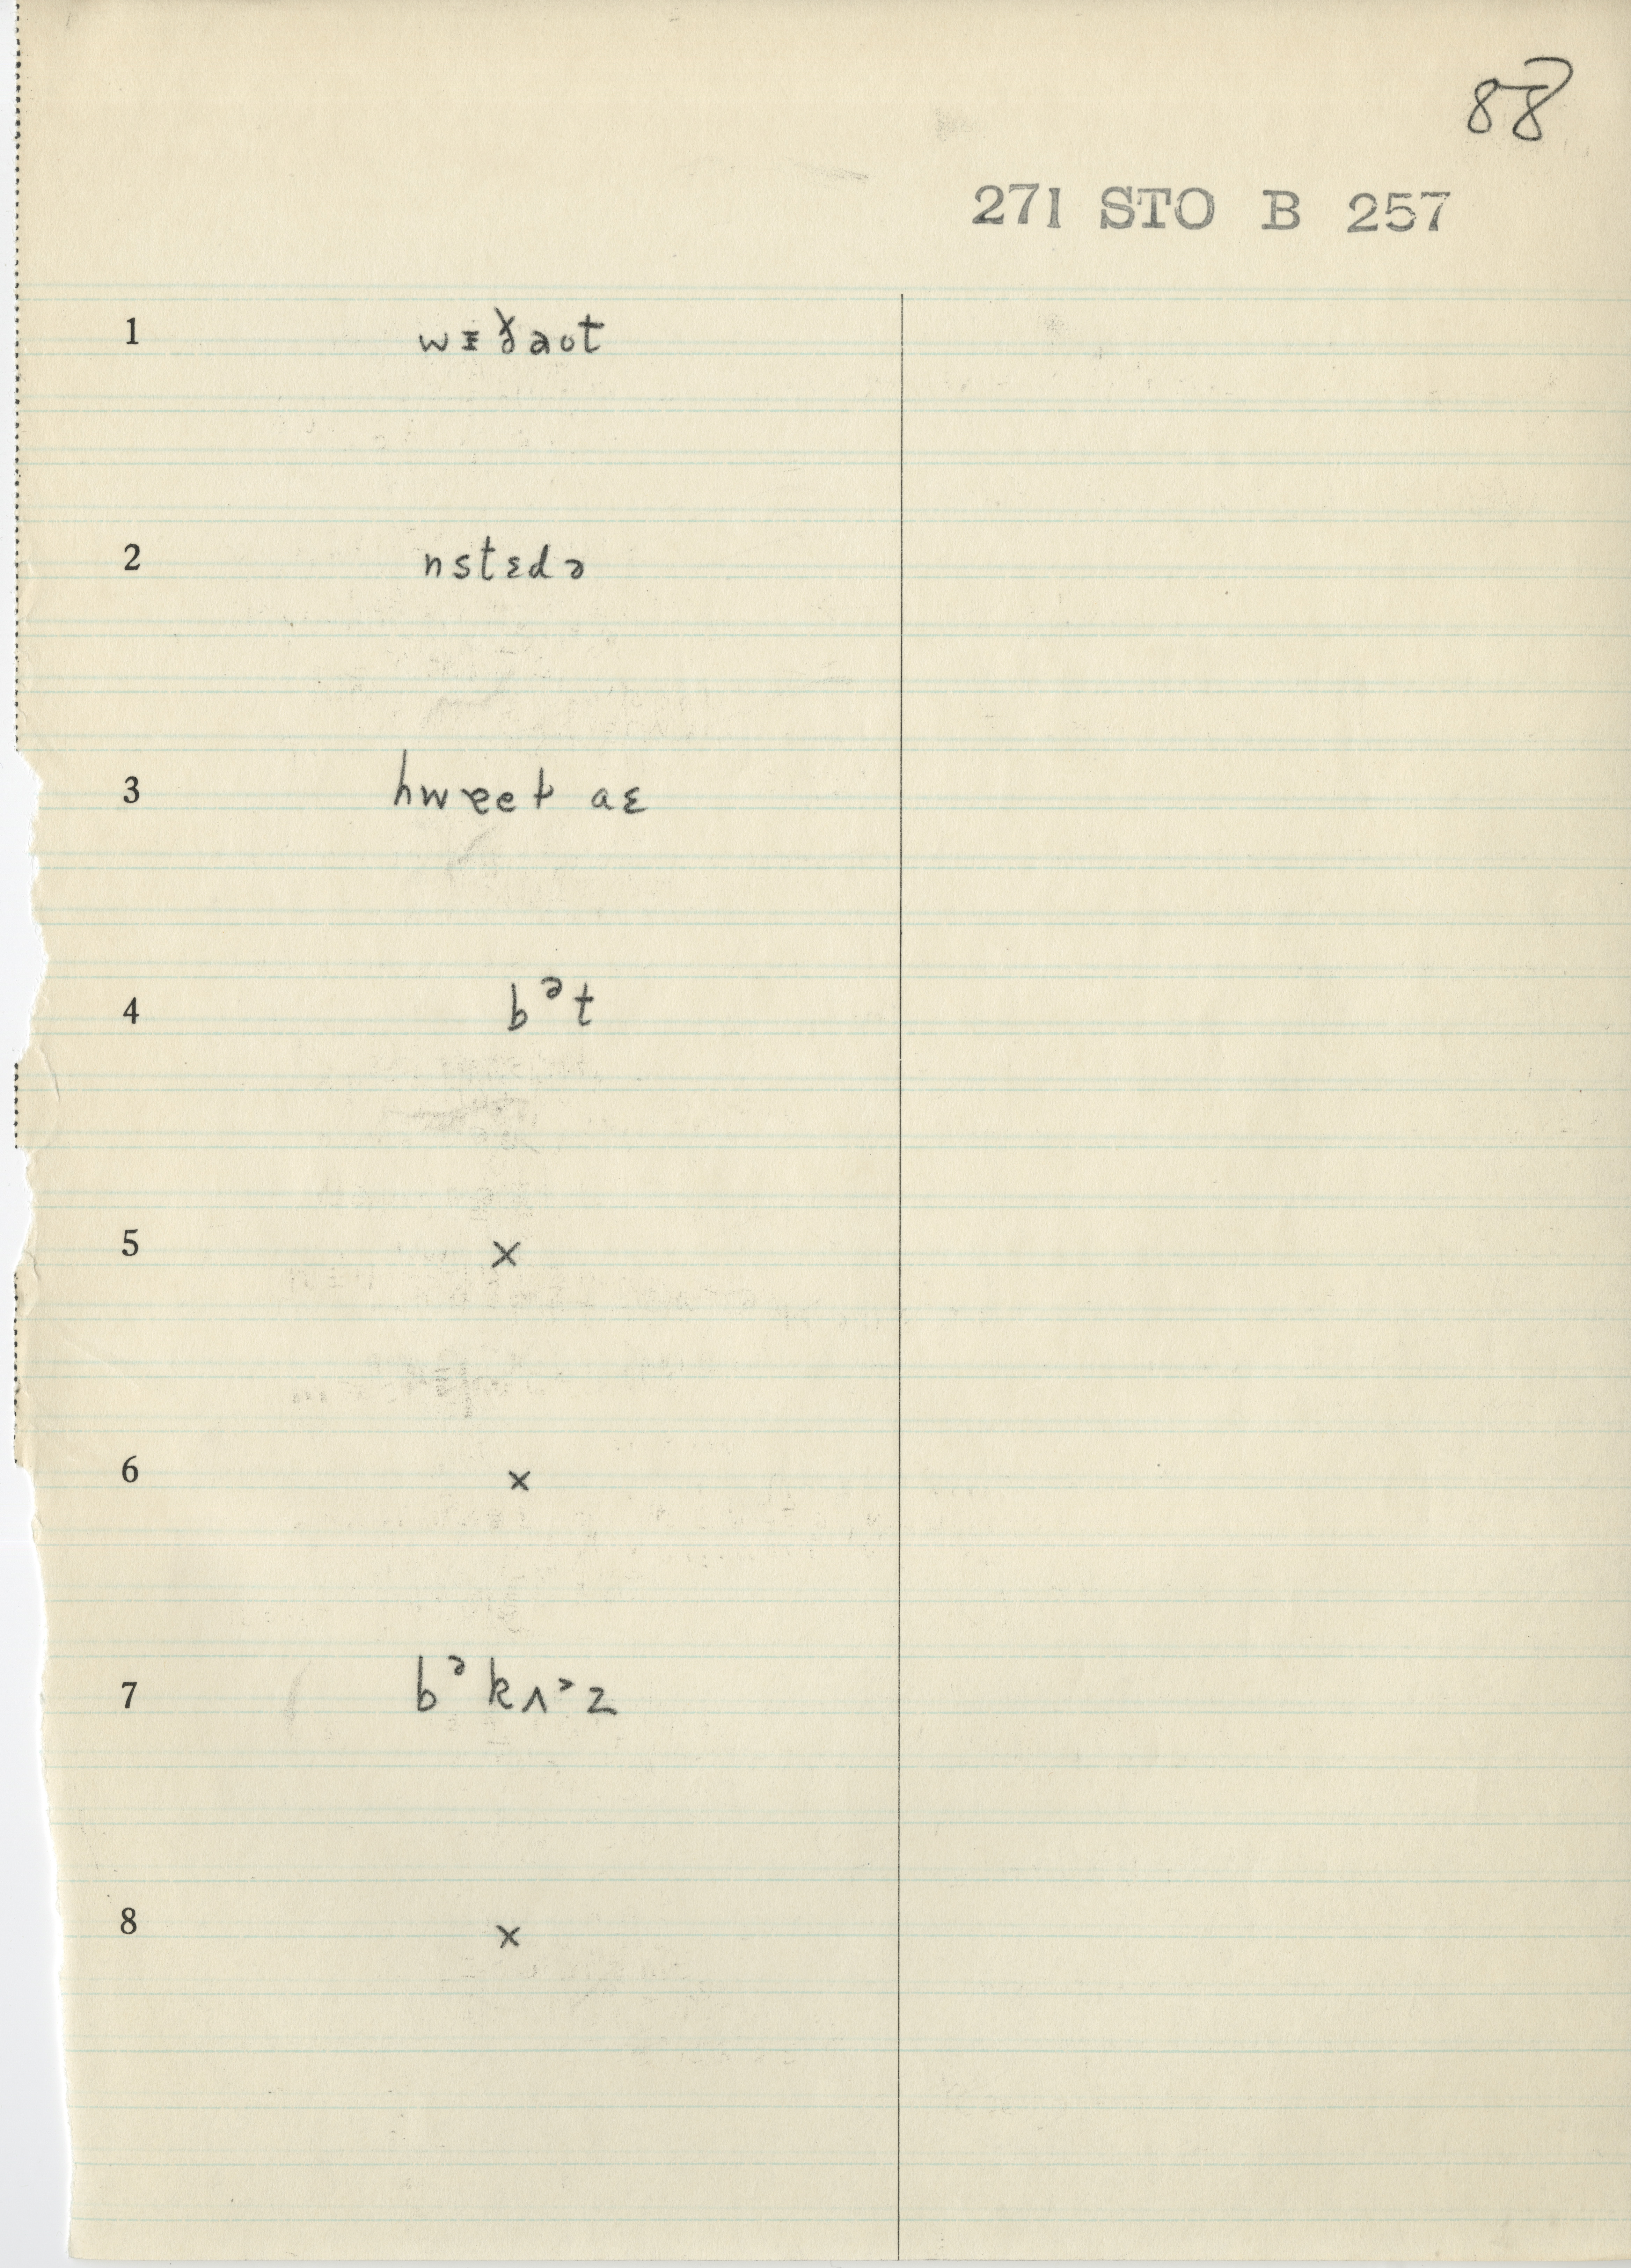 88
271 STO B 257
1 wɪðaʊt
2 nstɛdə
3 hwɐet aɛ
4 bᵊt
5 ×
6 ×
7 bᵊkʌᵊz
8 ×